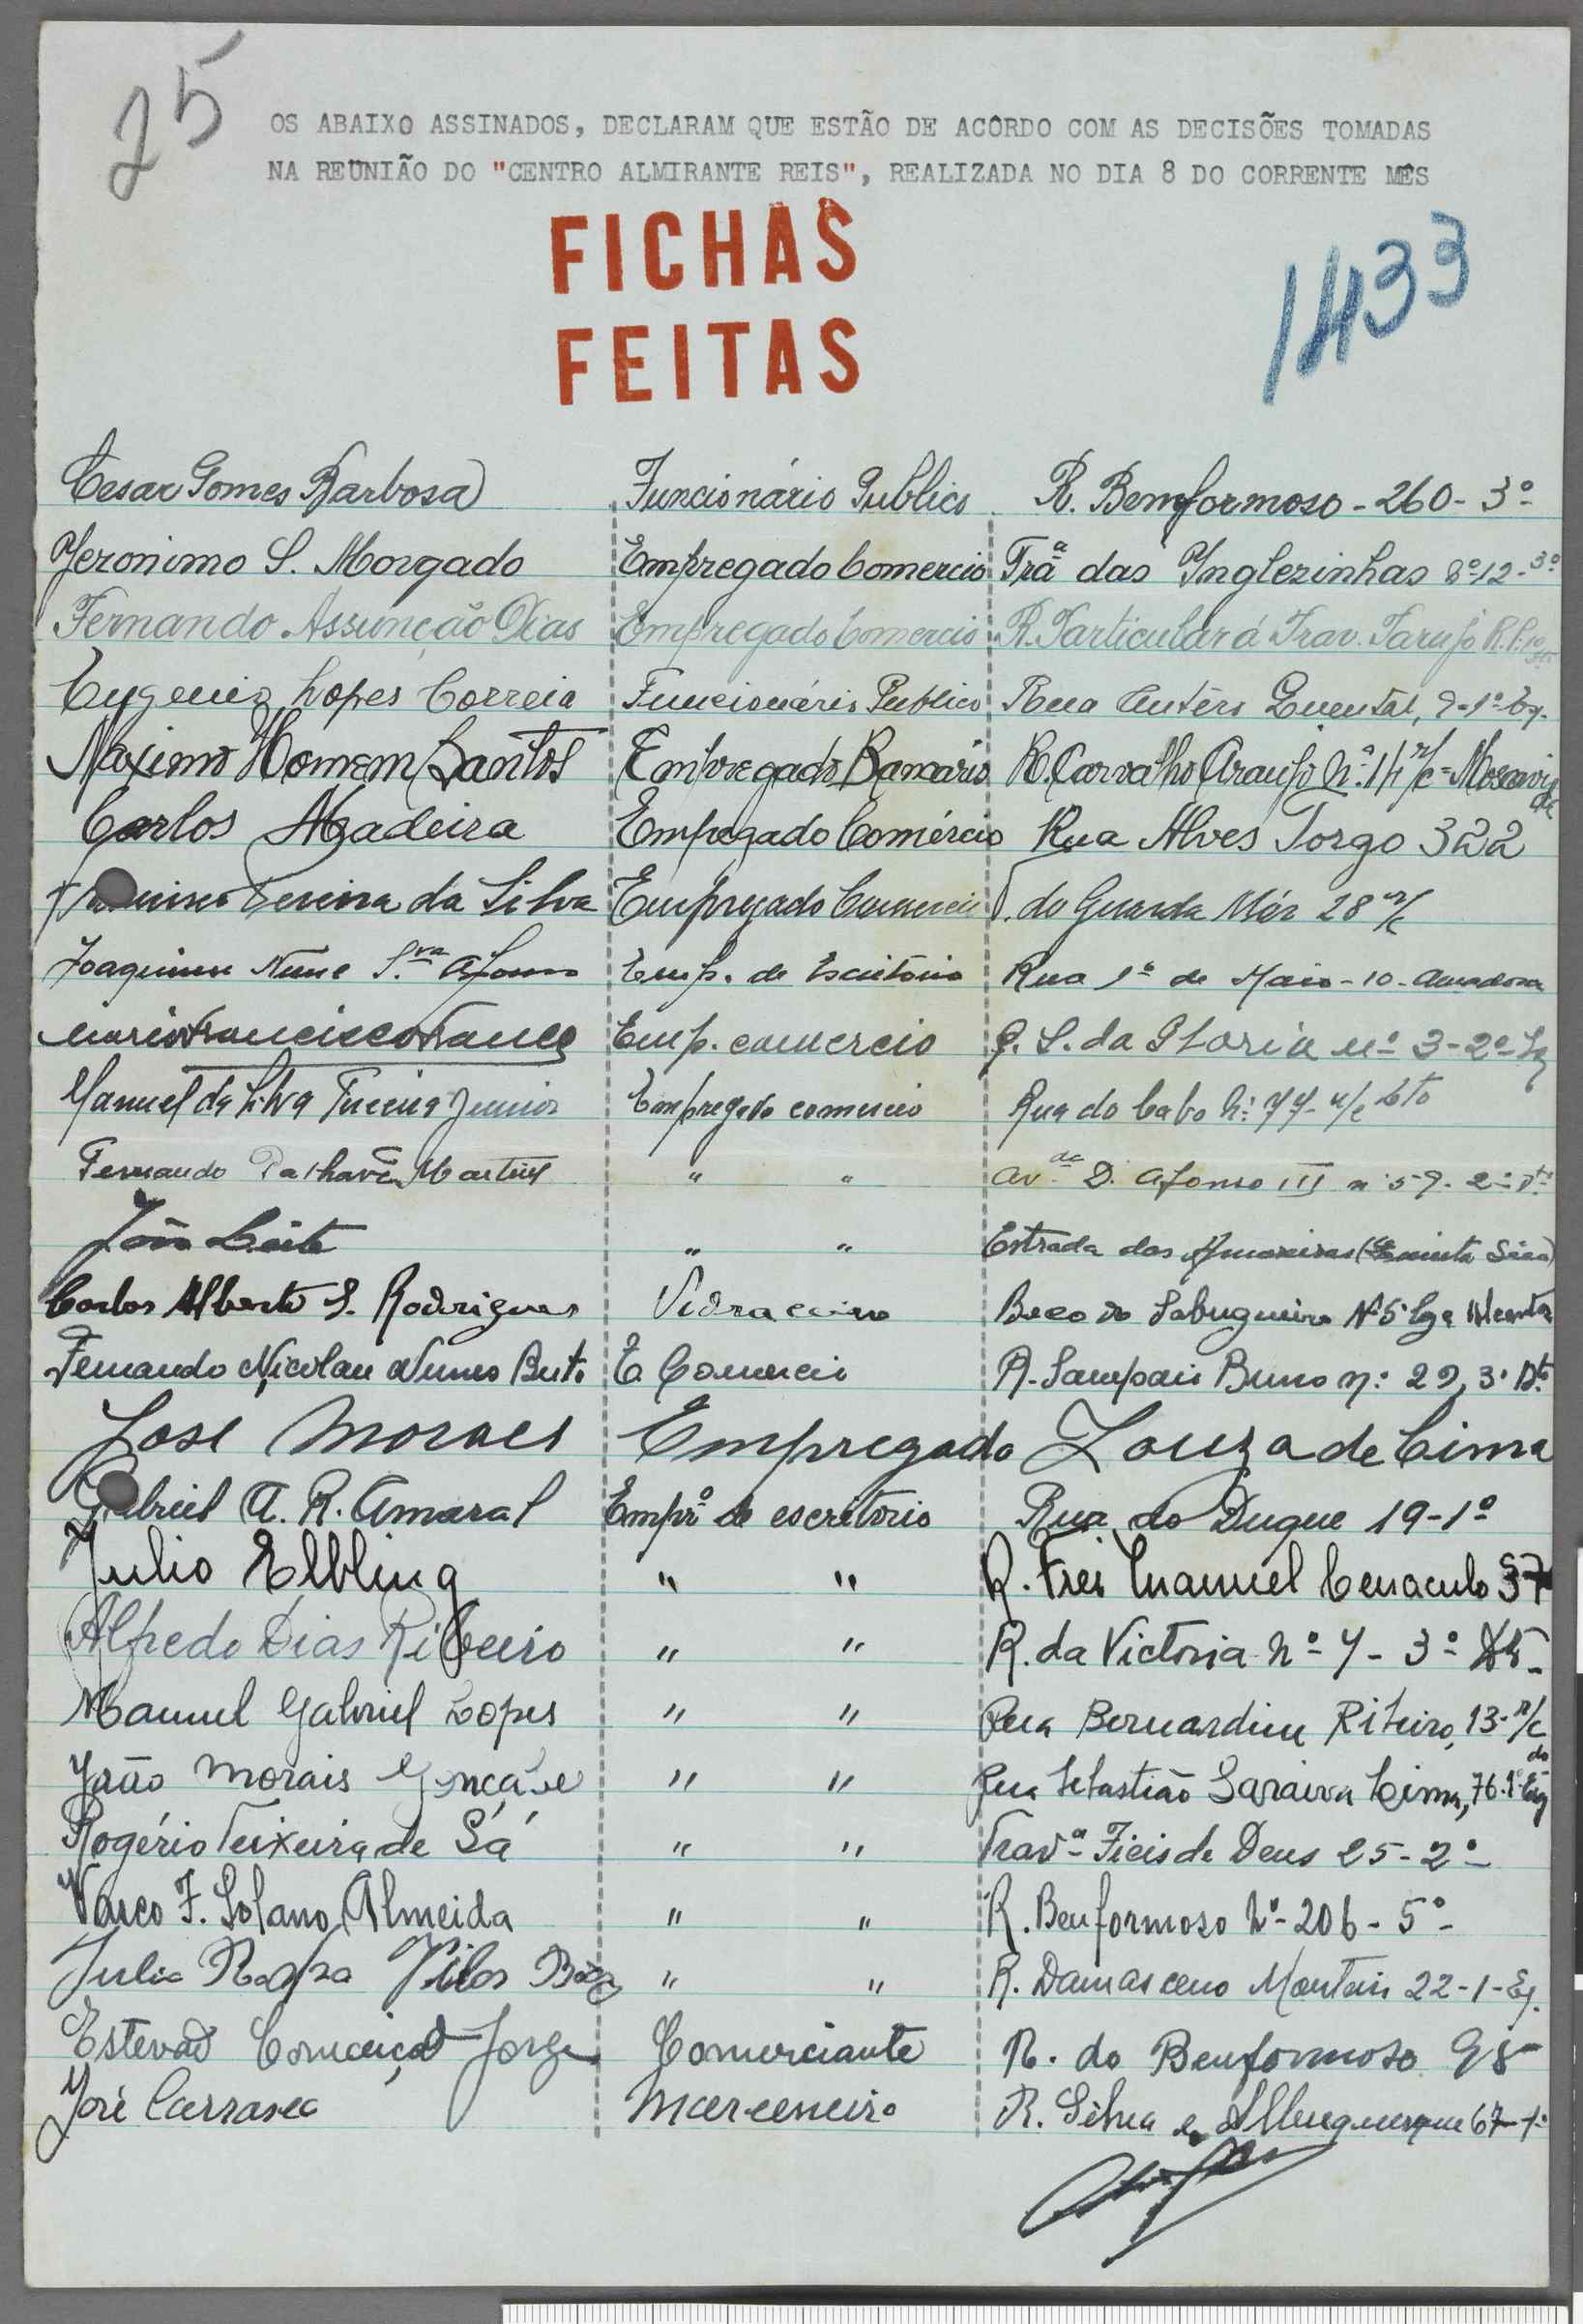 25
OS ABAIXO ASSINADOS, DECLARAM QUE ESTÃO DE ACÔRDO COM AS DECISÕES TOMADAS
NA REUNIÃO DO "CENTRO ALMIRANTE REIS", REALIZADA NO DIA 8 DO CORRENTE MÊS
FICHAS
FEITAS
1433
Cesar Gomes Barbosa Funcionário Publico R. Bemformoso - 260 - 3º
Jeronimo S. Morgado Empregado Comercio Trª das Inglezinhas 12 - 3º
Fernando Assunção Dias Empregado Comercio R. Particular á Trav. Tarujo
Lopes Correia Funcionário Publico Rua Antéro Quental, 9-1º Eq.
Maximo Homem Santos Empregado Bancário R. Carvalho Araujo Nº r/c - Moscavide
Carlos Madeira Empregado Comércio Rua Alves Torgo 322
Pereira da Silva Empregado Comercio T. do Guarda Mór 28 r/c
Joaquim Nune S.va Afonso Emp. de Escritório Rua 1º de Maio - 10 - Amadora
Mario Francisco Emp. comercio C. S. da Gloria nº 3-2º
Manuel da Silva Junior Empregado comercio Rua do Cabo Nº 77 r/c Dto
Fernando Palhavã Martins " " Av.da D. Afonso III nº 59. 2º Dto
João Leite " " Estrada das Amoreiras (Quinta
Carlos Alberto S. Rodrigues Vidraceiro Beco do Sabugueiro Nº 5
Fernando Nicolau Nunes E. Comercio R. Sampaio Bruno nº 29, 3º Dto
José Moraes Empregado Louza de Cima
Gabriel A. R. Amaral Emprº de escritório Rua do Duque 19-1º
Julio Elbling " " R. Frei Manuel Cenaculo 37
Alfredo Dias Ribeiro " " R. da Victoria Nº 7 - 3º Dto
Manuel Gabriel Lopes " " Rua Bernardim Ribeiro, 13 - r/c do
João Morais " " Rua Sebastião Saraiva Lima, 76-1º Esq
Rogério Teixeira de Sá " " Travª Fieis de Deus 25-2º
Vasco F. Solano Almeida " " R. Benformoso Nº 206 - 5º
Vilas " " R. Damasceno Monteiro 22-1-Eq.
Estevão Conceição Jorge Comerciante R. do Benformoso 98
José Carrasco Marceneiro R. Silva e Albuquerque 67-1º